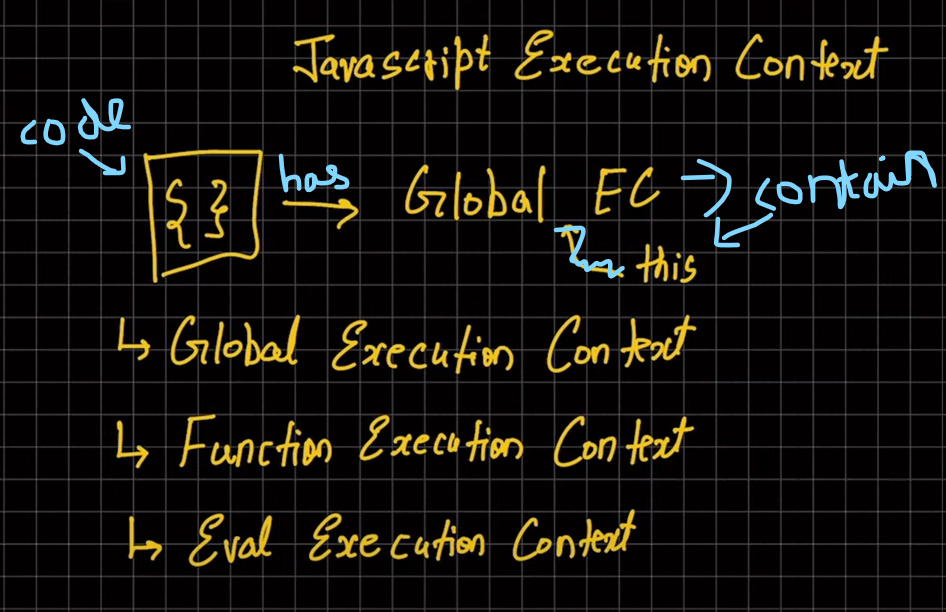 Javascript Execution Context
code
{ } has Global EC contain
this
↳ Global Execution Context
↳ Function Execution Context
↳ Eval Execution Context